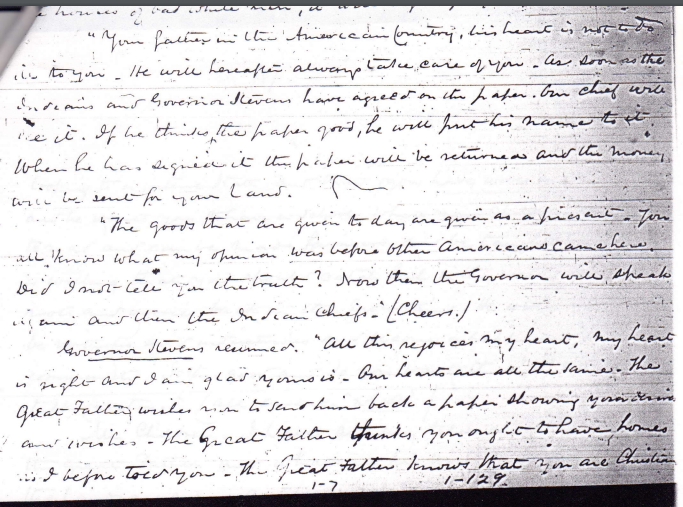 "Your father in the American Country, his heart is not to do
ill to you - He will hereafter always take care of you - As soon as the
Indians and Governor Stevens have agreed on the paper. Our chief will
see it. If he thinks the paper good, he will put his name to it
When he has signed it the paper will be returned and the money
will be sent for your Land.
"The goods that are given to day are given as a present - You
all know what my opinion was before other Americans came here.
Did I not tell you the truth? Now then the Governor will speak
again and then the Indian Chiefs." (Cheers.)
Governor Stevens resumed. "All this rejoices my heart, my heart
is right and I am glad yours is - Our hearts are all the same. The
Great Father wishes you to send him back a paper showing your
and wishes - The Great Father thinks you ought to have homes
as I before told you - The Great Father knows that you are Christian
1-7 1-129.